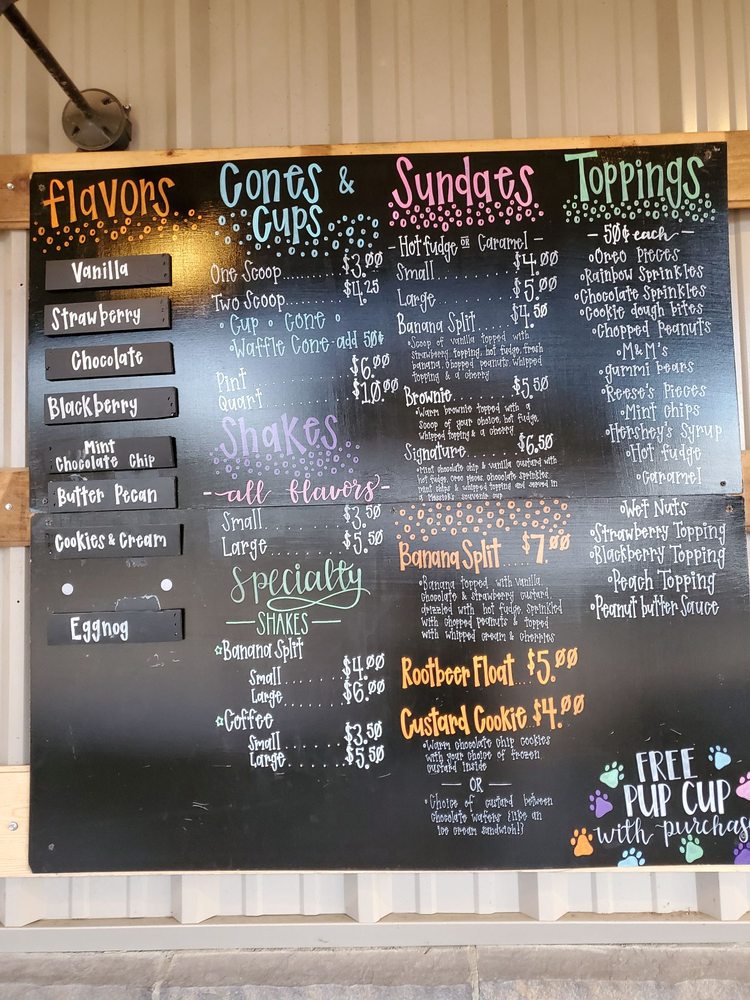 flavors
Vanilla
Strawberry
Chocolate
Blackberry
Mint
Chocolate Chip
Butter Pecan
Cookies & Cream
Eggnog
Cones &
Cups
One Scoop........ $3.00
Two Scoop........ $4.25
• Cup • Cone •
• Waffle Cone-add 50¢
Pint ........ $6.00
Quart ........ $10.00
Shakes
-all flavors-
Small ........ $3.50
Large ........ $5.50
Specialty
— SHAKES —
☆Banana Split
Small ........ $4.00
Large ........ $6.00
☆Coffee
Small ........ $3.50
Large ........ $5.50
Sundaes
- Hot fudge OR Caramel -
Small ........ $4.00
Large ........ $5.00
Banana Split ..... $4.50
•Scoop of vanilla topped with
strawberry topping, hot fudge, fresh
banana, chopped peanuts, whipped
topping & a cherry
Brownie ........ $5.50
•Warm brownie topped with a
scoop of your choice, hot fudge,
whipped topping & a cherry
Signature ........ $6.50
•Mint chocolate chip & vanilla custard with
hot fudge, oreo pieces, chocolate sprinkles,
mint chips & whipped topping and served in
a souvenir cup
Banana Split ... $7.00
•Banana topped with vanilla,
chocolate & strawberry custard,
drizzled with hot fudge, sprinkled
with chopped peanuts & topped
with whipped cream & cherries
Rootbeer Float ... $5.00
Custard Cookie $4.00
•Warm chocolate chip cookies
with your choice of frozen
custard inside
— OR —
• Choice of custard between
chocolate wafers {like an
ice cream sandwich!}
Toppings
- 50¢ each -
•Oreo Pieces
•Rainbow Sprinkles
•Chocolate Sprinkles
•Cookie dough bites
•Chopped Peanuts
•M&M's
•gummi bears
•Reese's Pieces
•Mint chips
•Hershey's Syrup
•Hot fudge
•Caramel
•Wet Nuts
•Strawberry Topping
•Blackberry Topping
•Peach Topping
•Peanut butter Sauce
FREE
PUP CUP
with purchase